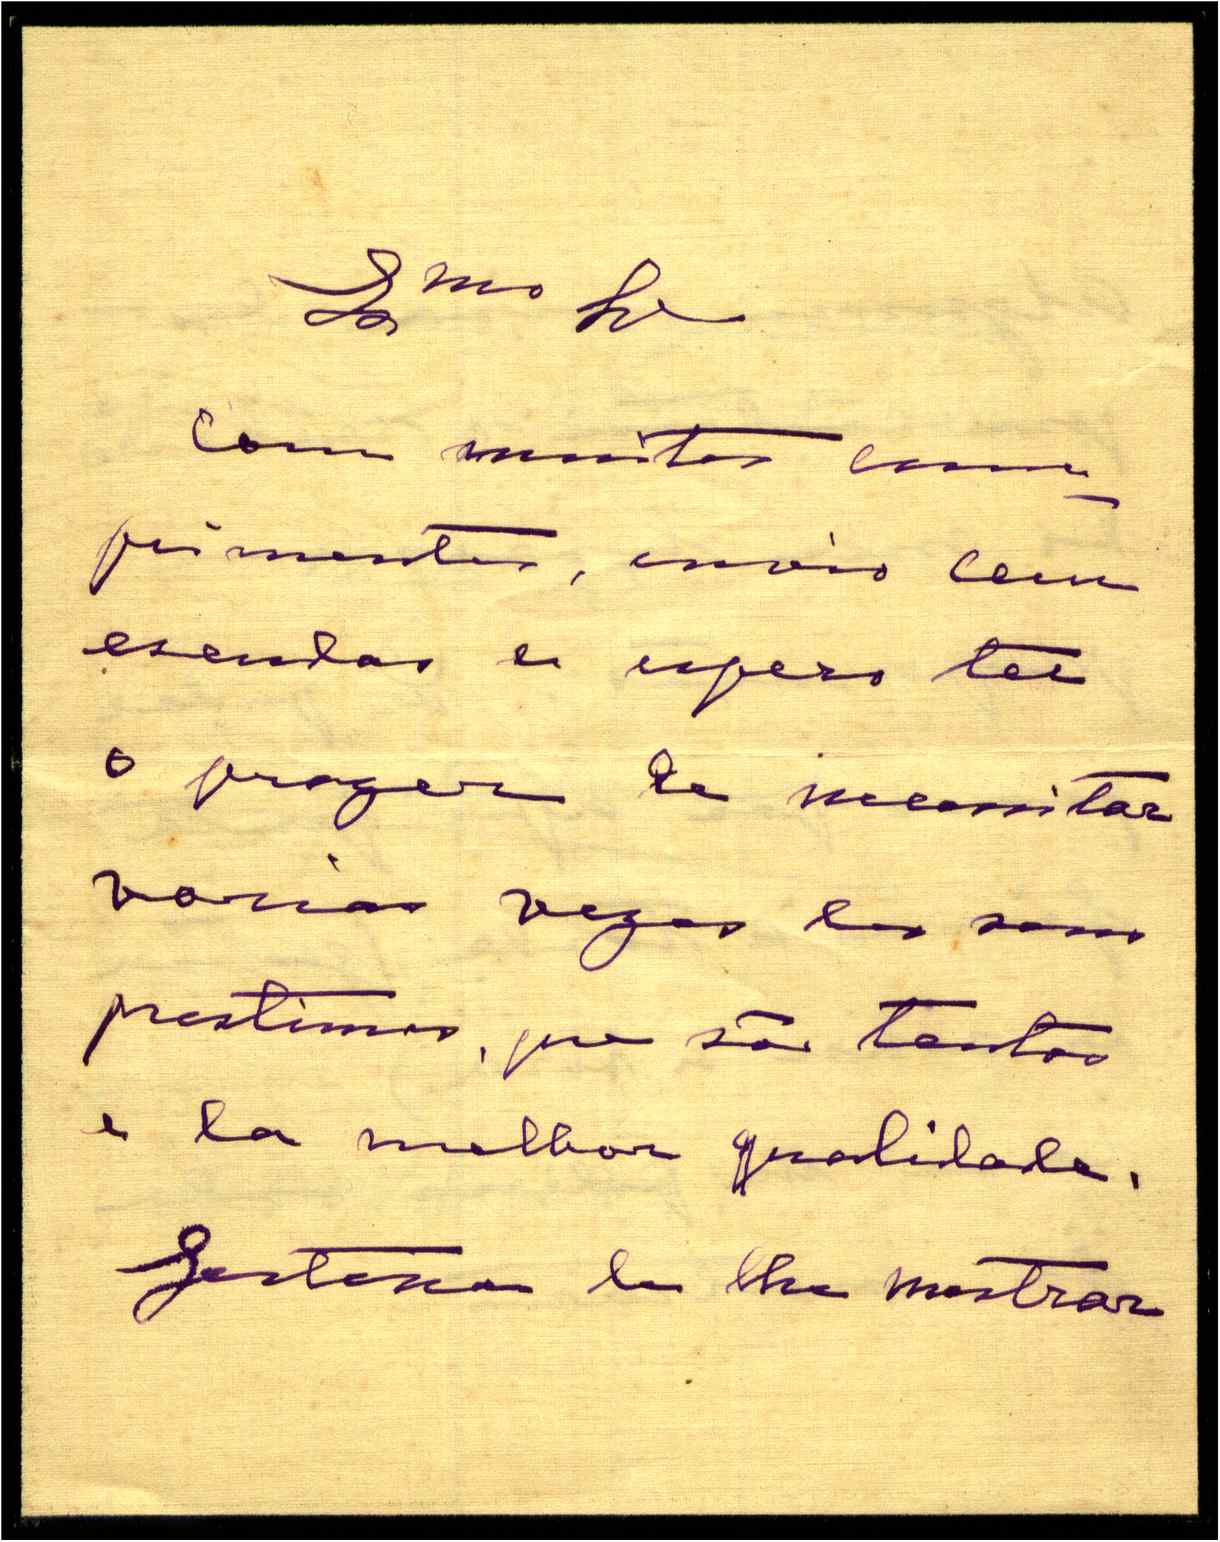 Exmo Sr
Com muitos cum-
primentos, envio cem
escudos e espero ter
o prazer de necessitar
varias vezes dos seus
prestimos, que são tantos
e da melhor qualidade.
Gostava de lhe mostrar